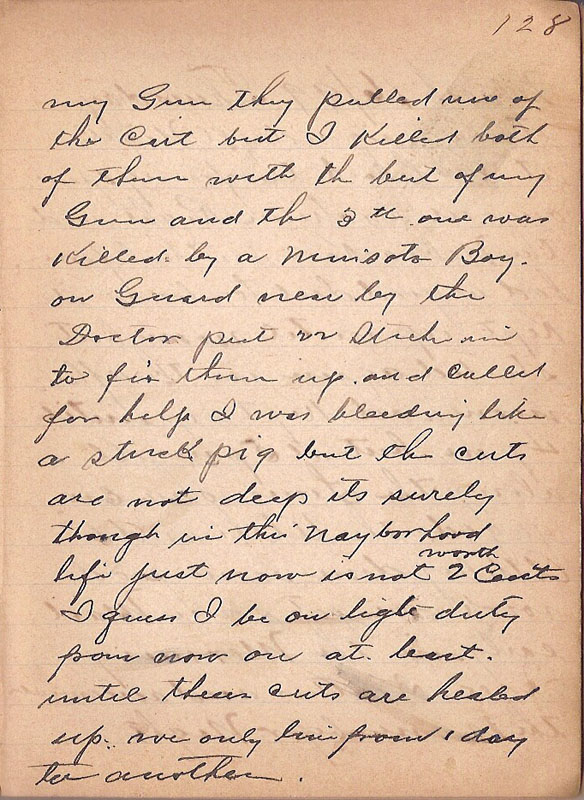 128
my Gun they pulled me of
the Cart but I Killed both
of them with th but of my
Gun and th 3th one was
Killed by a Minisota Boy.
on Guard near by the
Doctor put 22 Stiches in
to fix them up. and called
for help I was bleeding like
a stuck pig but th cuts
are not deep its surely
though in this Nayborhood
worth
life just now is not 2 Cents
I guess I be on light duty
from now on at. least.
until these cuts are healed
up. we only live from 1 day
to another.